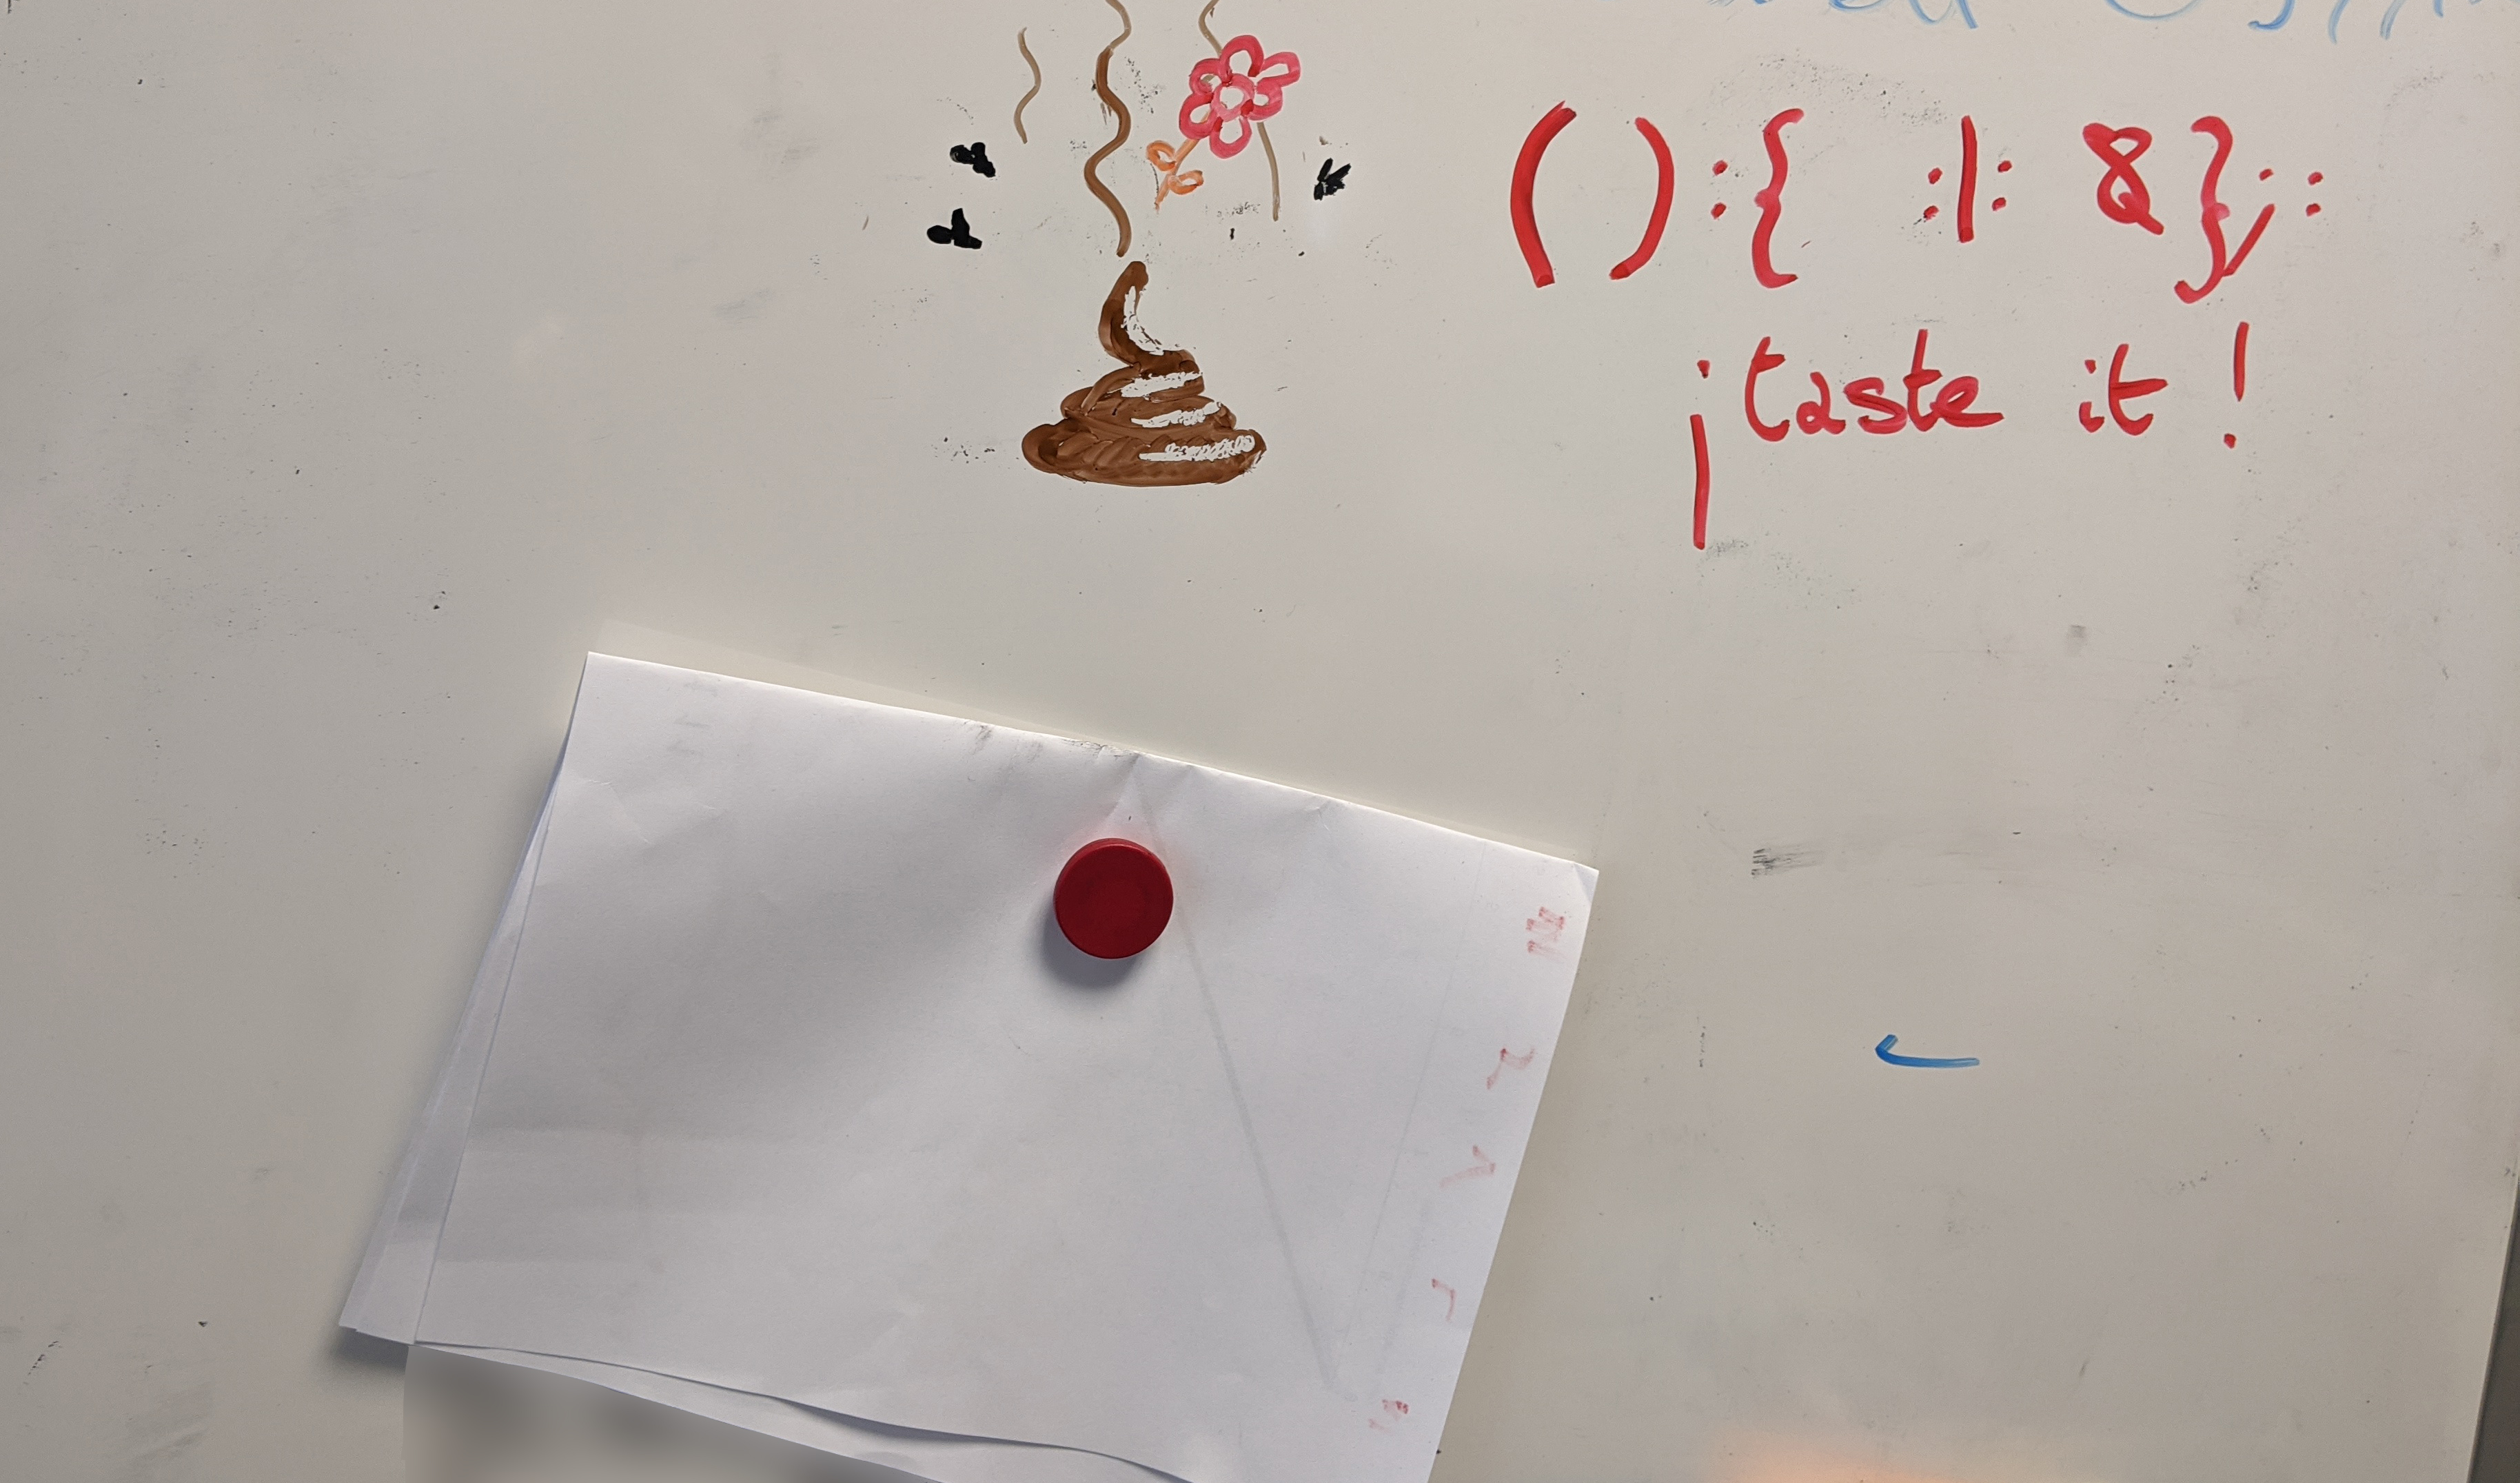 ():{ :|: &};:
¡taste it!